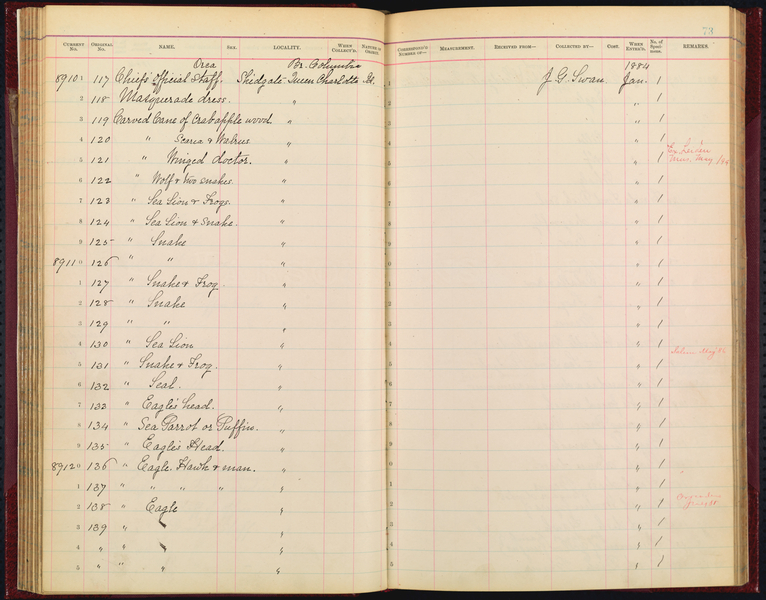 73
CURRENT No. ORIGINAL No. NAME. SEX. LOCALITY. WHEN COLLECT'D. NATURE OF OBJECT. CORRESPOND'G NUMBER OF— MEASUREMENT. RECEIVED FROM— COLLECTED BY— COST. WHEN ENTER'D. No. of Speci-mens. REMARKS.
Orca Br. Columbia 1884
8910 1 117 Chiefs official Staff. Skidgate Queen Charlotte Is. 1 J. G. Swan. Jan. 1
2 118 Masquerade dress. " 2 " 1
3 119 Carved Cane of Crabapple wood. " 3 " 1
4 120 " & Walrus " 4 " 1
5 121 " Winged doctor. " 5 " 1
6 122 " Wolf & two snakes. " 6 " 1
7 123 " Sea Lion & Frogs. " 7 " 1
8 124 " Sea Lion & Snake. " 8 " 1
9 125 " Snake " 9 " 1
8911 0 126 " " " 0 " 1
1 127 " Snake & Frog. " 1 " 1
2 128 " Snake " 2 " 1
3 129 " " " 3 " 1
4 130 " Sea Lion " 4 " 1
5 131 " Snake & Frog. " 5 " 1
6 132 " Seal. " 6 " 1
7 133 " Eagle's head. " 7 " 1
8 134 " Sea Parrot or Puffin. " 8 " 1
9 135 " Eagle's Head. " 9 " 1
8912 0 136 " Eagle, Hawk & man. " 0 " 1
1 137 " " " " " 1 " 1
2 138 " Eagle " 2 " 1
3 139 " " " 3 " 1
4 " " " " 4 " 1
5 " " " " 5 " 1